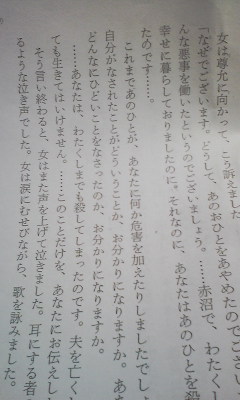 やめたのでござい
女は尊允に向かって、こう訴えました
「なぜでございます。どうして、あのおひとをあやめたので
んな悪事を働いたというのでございましょう。……赤沼で、わたくし
幸せに暮らしておりましたのに。それなのに、あなたはあのひとを殺
たのです……。
これまであのひとが、あなたに何か危害を加えたりしましたでしょ
自分がなされたことがどういうことか、お分かりになりますか。あ
どんなにひどいことをなさったのか、お分かりになりますか。
……あなたは、わたくしまでも殺してしまったのです。夫を亡くし
ても生きてはいけません。……このことだけを、あなたにお伝えし
そう言い終わると、女はまた声を上げて泣きました。耳にする者
るような泣き声でした。女は涙にむせびながら、歌を詠みました。